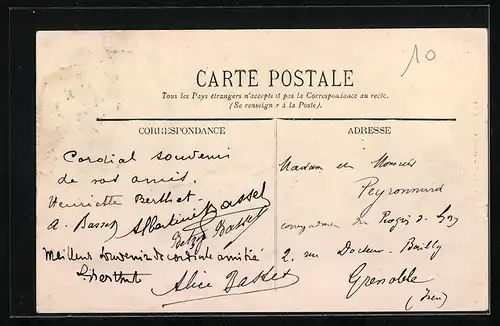 10
CARTE POSTALE
Tous les Pays étrangers n'acceptent pas la Correspondance au recto.
(Se renseigner à la Poste).
CORRESPONDANCE
Cordial souvenir
de vos amis.
Henriette Berthet.
A. Basset Basset
Basset
Meilleur souvenir de cordiale amitié
Berthet
Alice Basset
ADRESSE
Madame et Monsieur
Peyronnard
du Progrès de Lyon
2, rue Docteur Bailly
Grenoble
(Isère)